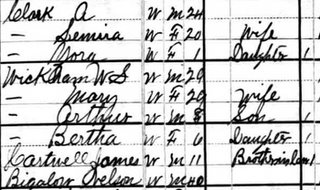 Clark A W M 24
— Semira W F 20 Wife
— Mora W F 1 Daughter 1
Wickham W S W M 29
— Mary W F 29 Wife
— Arthur W M 8 Son 1
— Bertha W F 6 Daughter 1
Cartwell James W M 11 Brotherinlaw 1
Bigalow Nelson W M 40